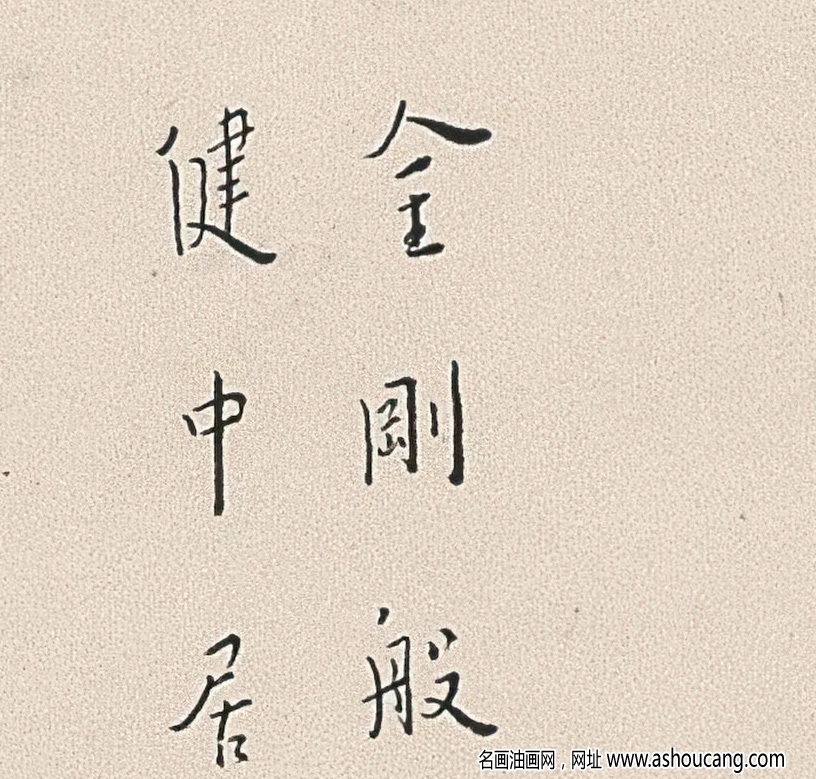 金剛般
健中居
名画油画网，网址 www.ashoucang.com